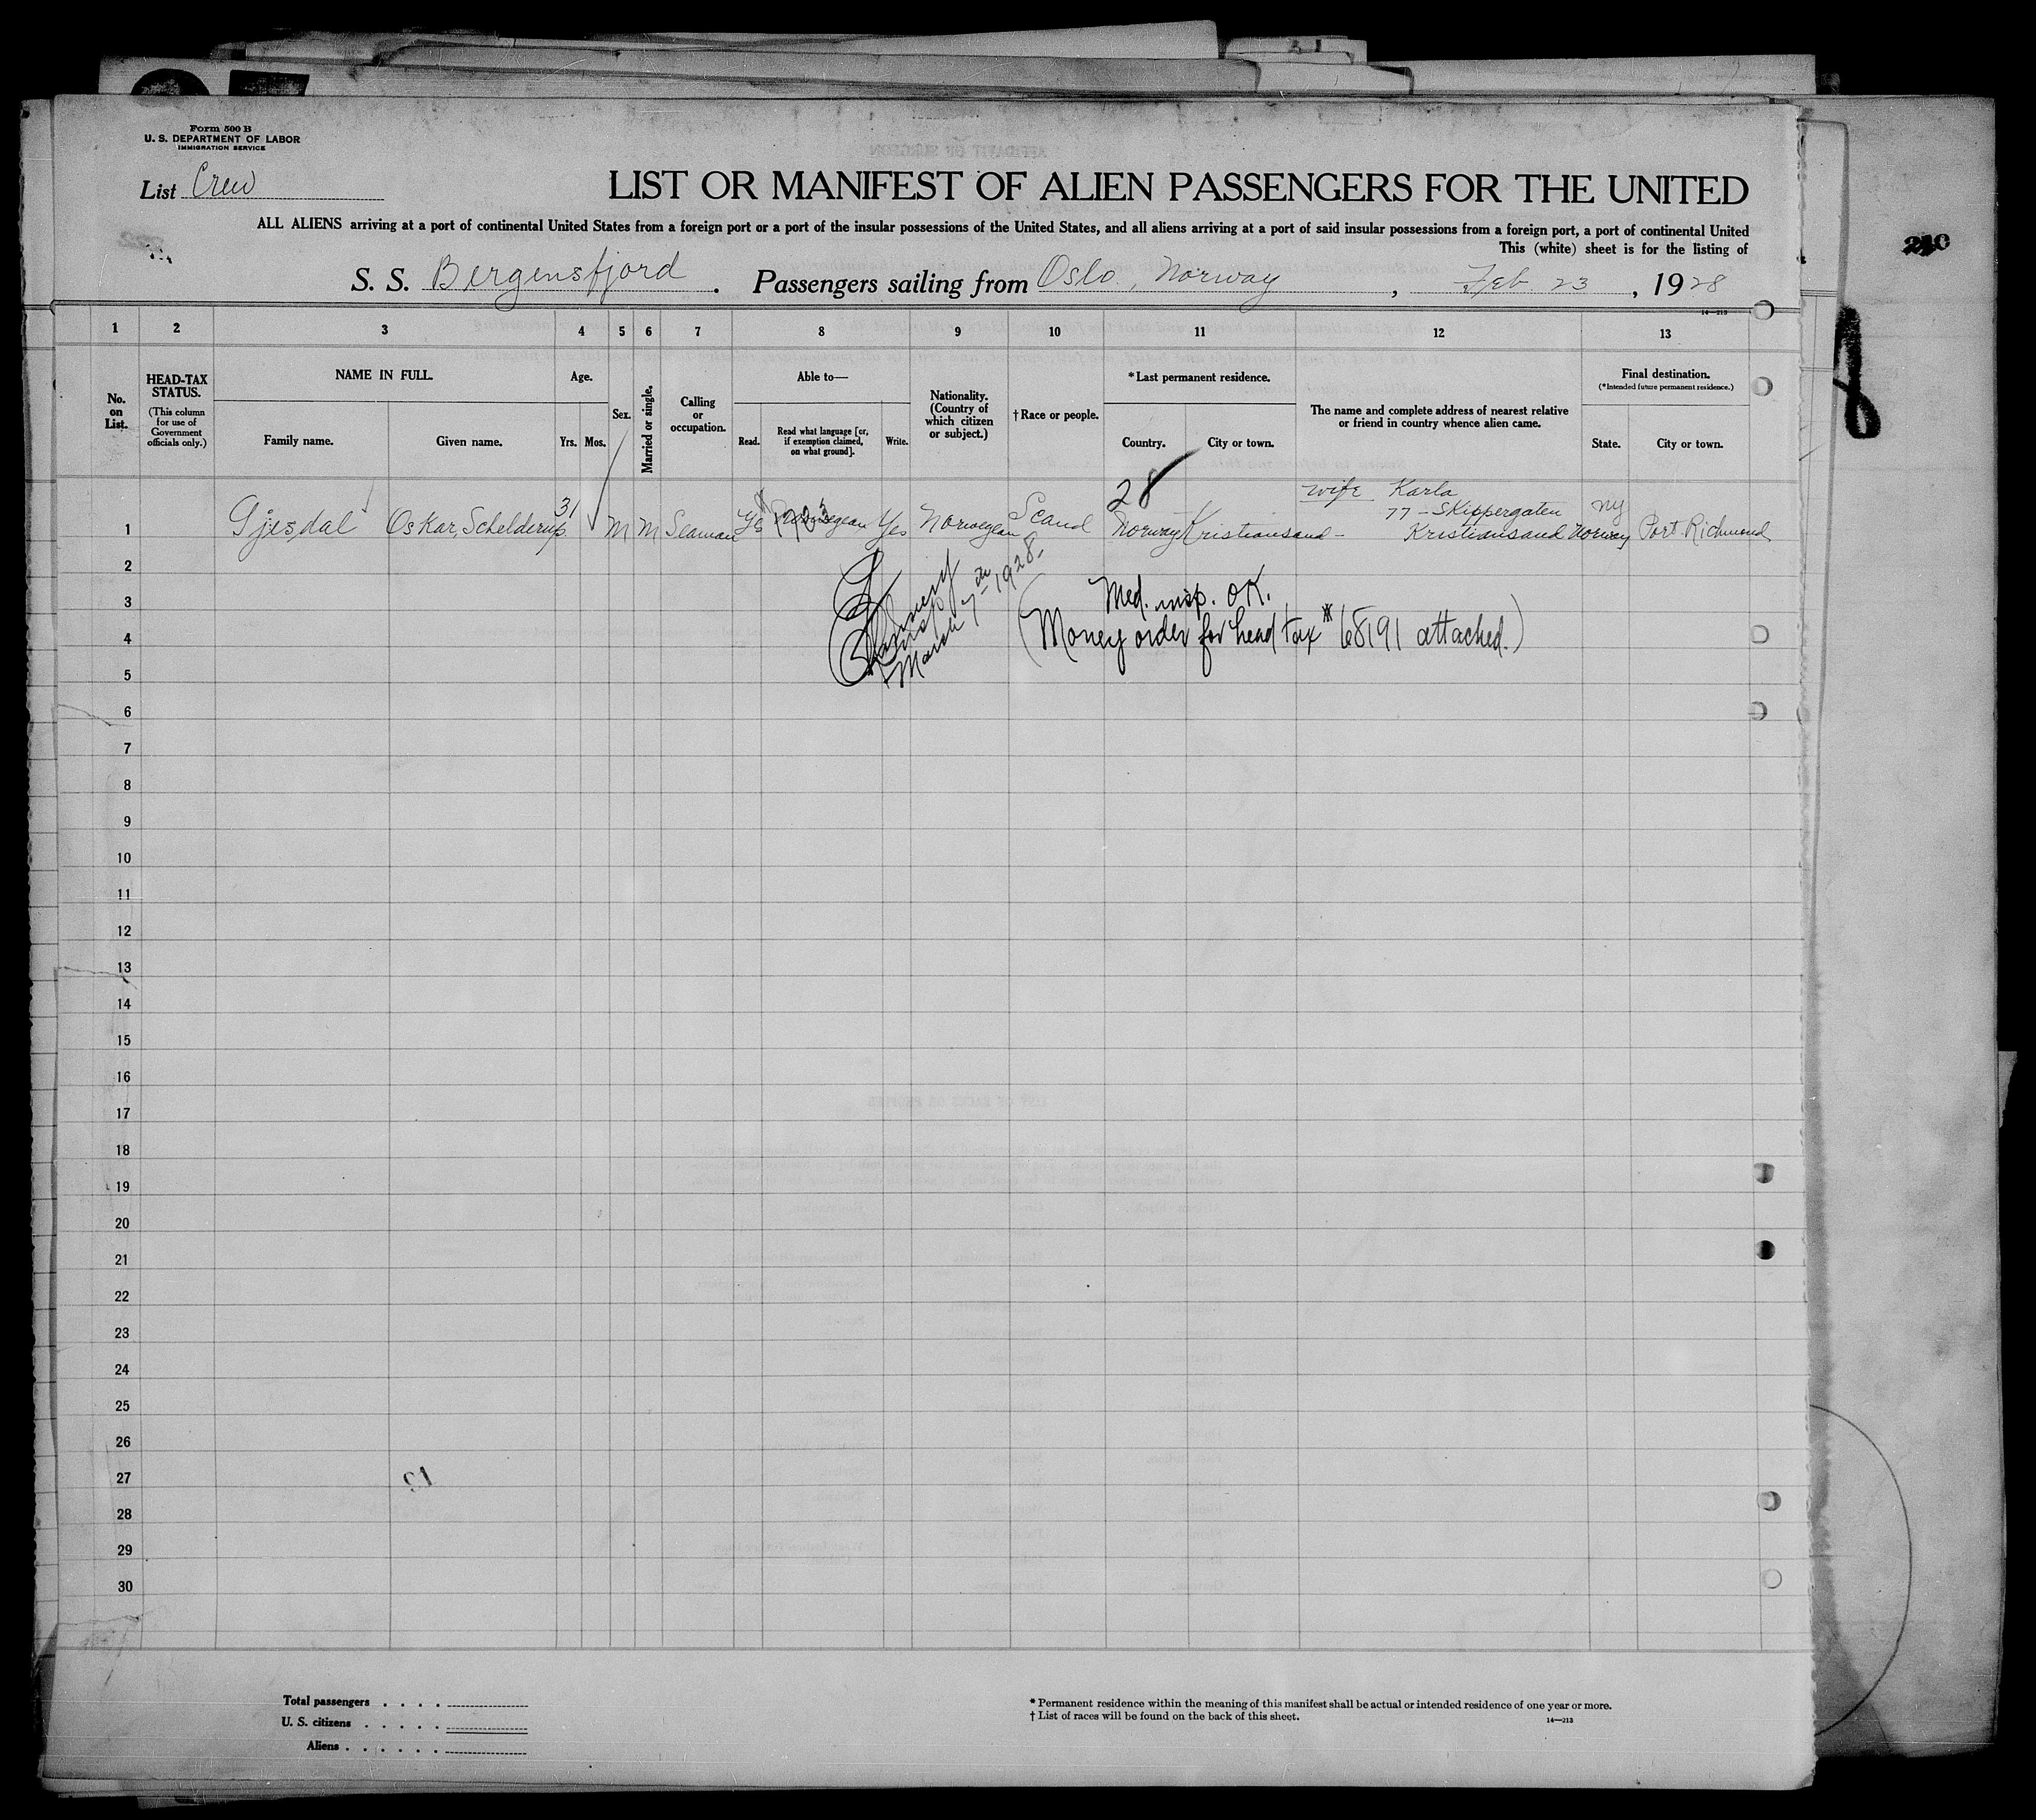 Form 500 B
U. S. DEPARTMENT OF LABOR
IMMIGRATION SERVICE
List Crew
LIST OR MANIFEST OF ALIEN PASSENGERS FOR THE UNITED
ALL ALIENS arriving at a port of continental United States from a foreign port or a port of the insular possessions of the United States, and all aliens arriving at a port of said insular possessions from a foreign port, a port of continental United
This (white) sheet is for the listing of
S. S. Bergensfjord. Passengers sailing from Oslo, Norway, Feb. 23, 1928
14—213
1 2 3 4 5 6 7 8 9 10 11 12 13
No. on List.
HEAD-TAX STATUS.
(This column for use of Government officials only.)
NAME IN FULL.
Family name. Given name.
Age.
Yrs. Mos.
Sex.
Married or single.
Calling or occupation.
Able to—
Read. Read what language [or, if exemption claimed, on what ground]. Write.
Nationality. (Country of which citizen or subject.)
† Race or people.
*Last permanent residence.
Country. City or town.
The name and complete address of nearest relative or friend in country whence alien came.
Final destination.
(*Intended future permanent residence.)
State. City or town.
28
wife Karla
77 - Skippergaten
Kristiansand Norway
1 Gjesdal Oskar, Schelderup 31 M M Seaman Yes Norwegian Yes Norwegean Scand Norway Kristiansand - NY Port Richmond
2
3
4
5
March 7th 1928.
Med. insp. OK.
(Money order for head tax # 68191 attached.)
6
7
8
9
10
11
12
13
14
15
16
17
18
19
20
21
22
23
24
25
26
27
28
29
30
Total passengers . . . .
U. S. citizens . . . . .
Aliens . . . . . .
* Permanent residence within the meaning of this manifest shall be actual or intended residence of one year or more.
† List of races will be found on the back of this sheet.
14—213